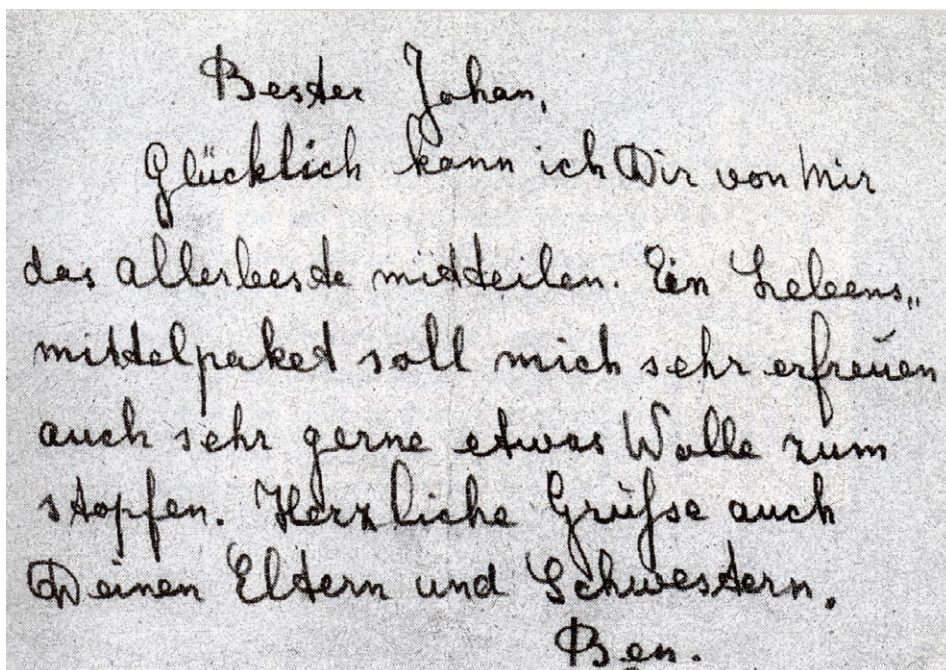 Bester Johan,
Glücklich kann ich Dir von mir
das allerbeste mitteilen. Ein Lebens„
mittelpaket soll mich sehr erfreuen
auch sehr gerne etwas Wolle zum
stopfen. Herzliche Grüsse auch
Deinen Eltern und Schwestern.
Ben.